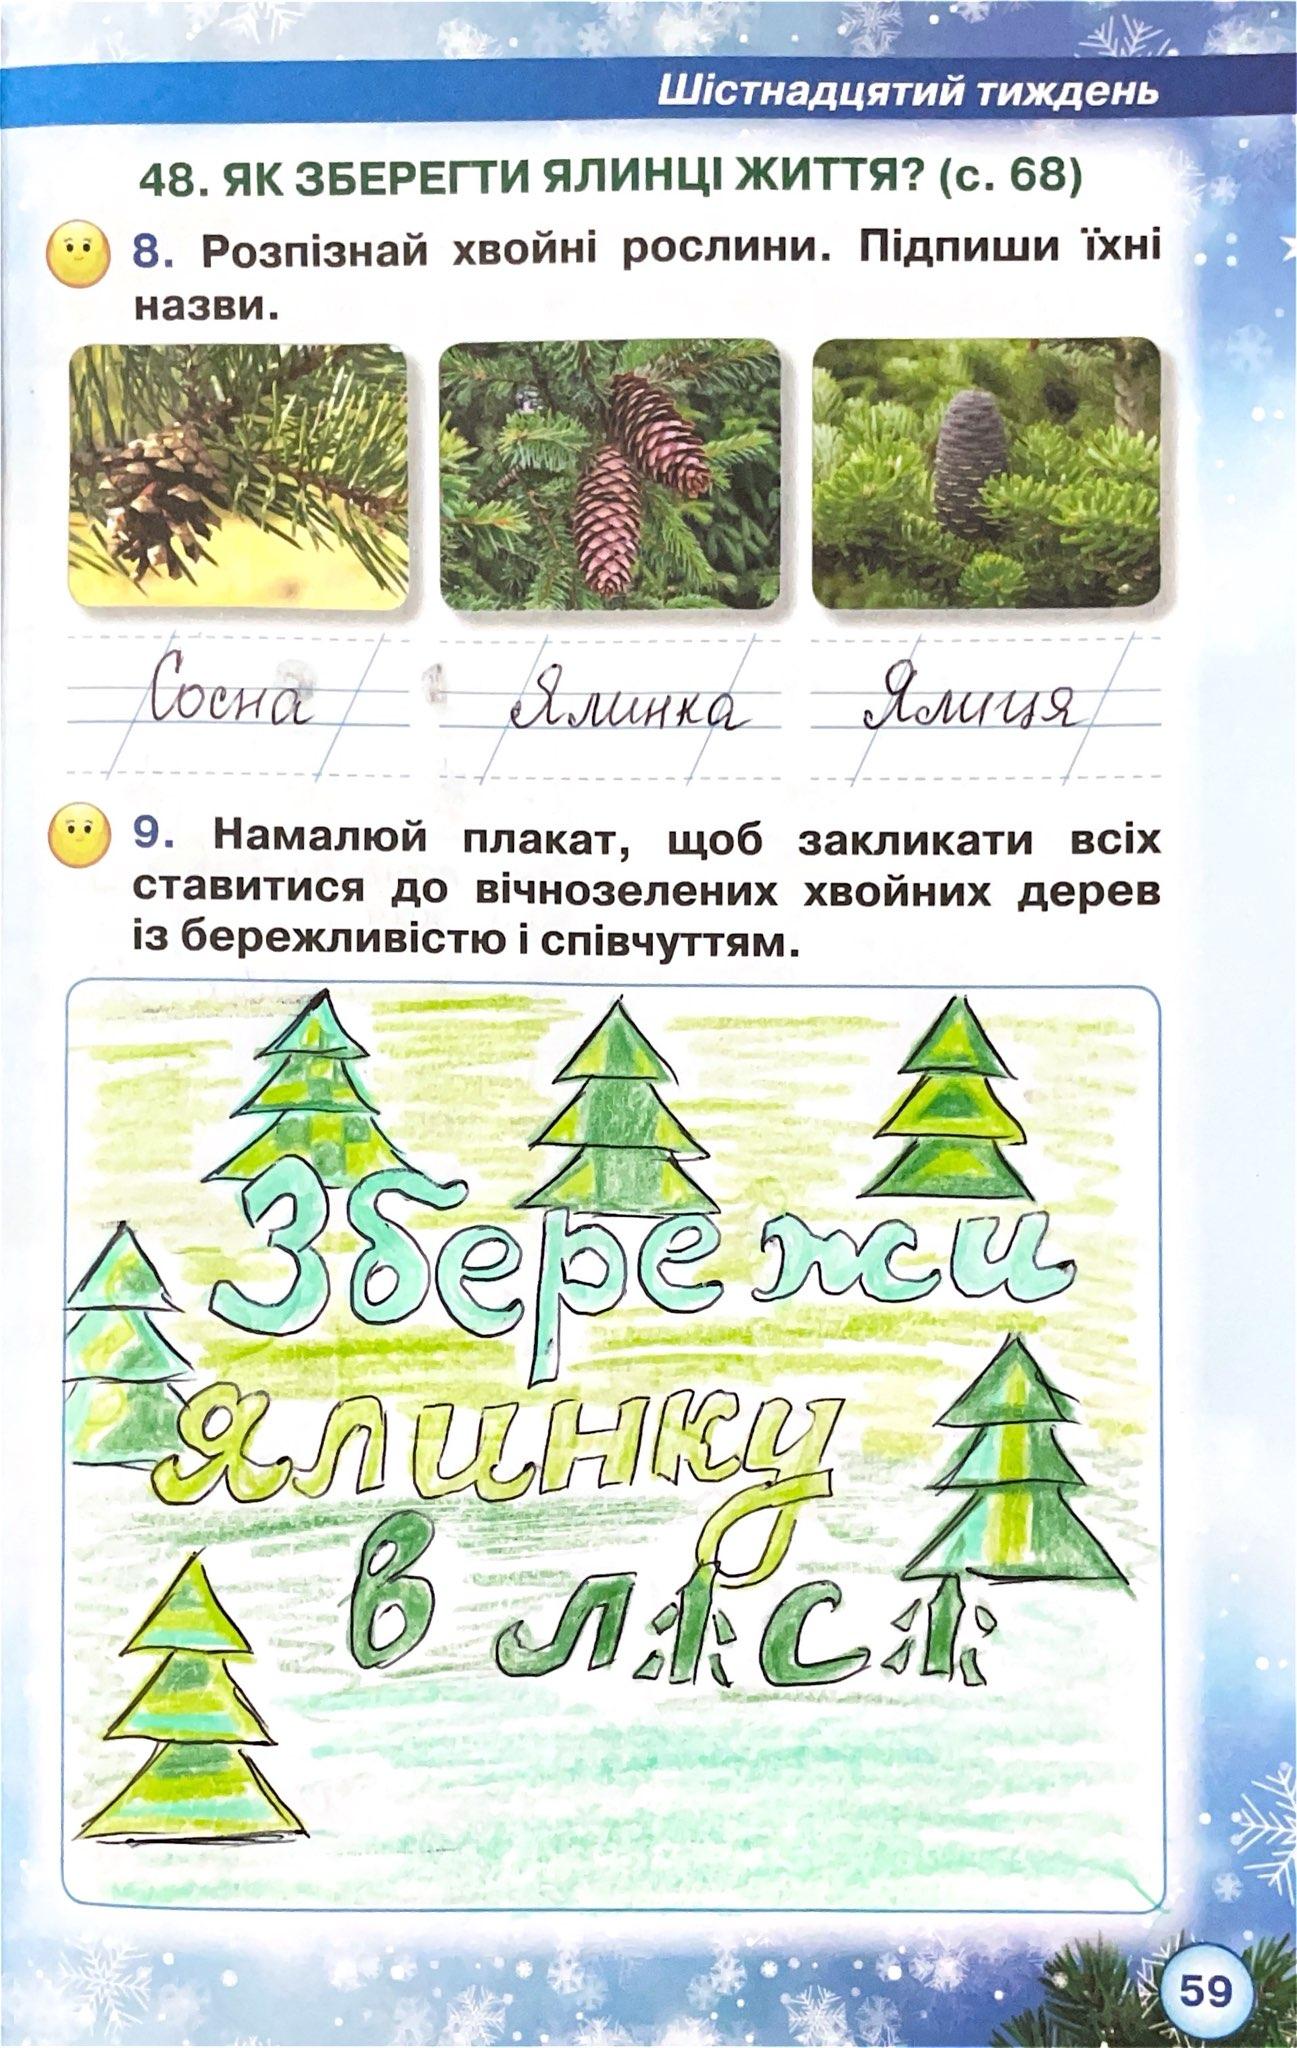 Шістнадцятий тиждень
48. ЯК ЗБЕРЕГТИ ЯЛИНЦІ ЖИТТЯ? (с. 68)
8. Розпізнай хвойні рослини. Підпиши їхні
назви.
Сосна Ялинка Ялиця
9. Намалюй плакат, щоб закликати всіх
ставитися до вічнозелених хвойних дерев
із бережливістю і співчуттям.
Збережи
ялинку
в лісі
59